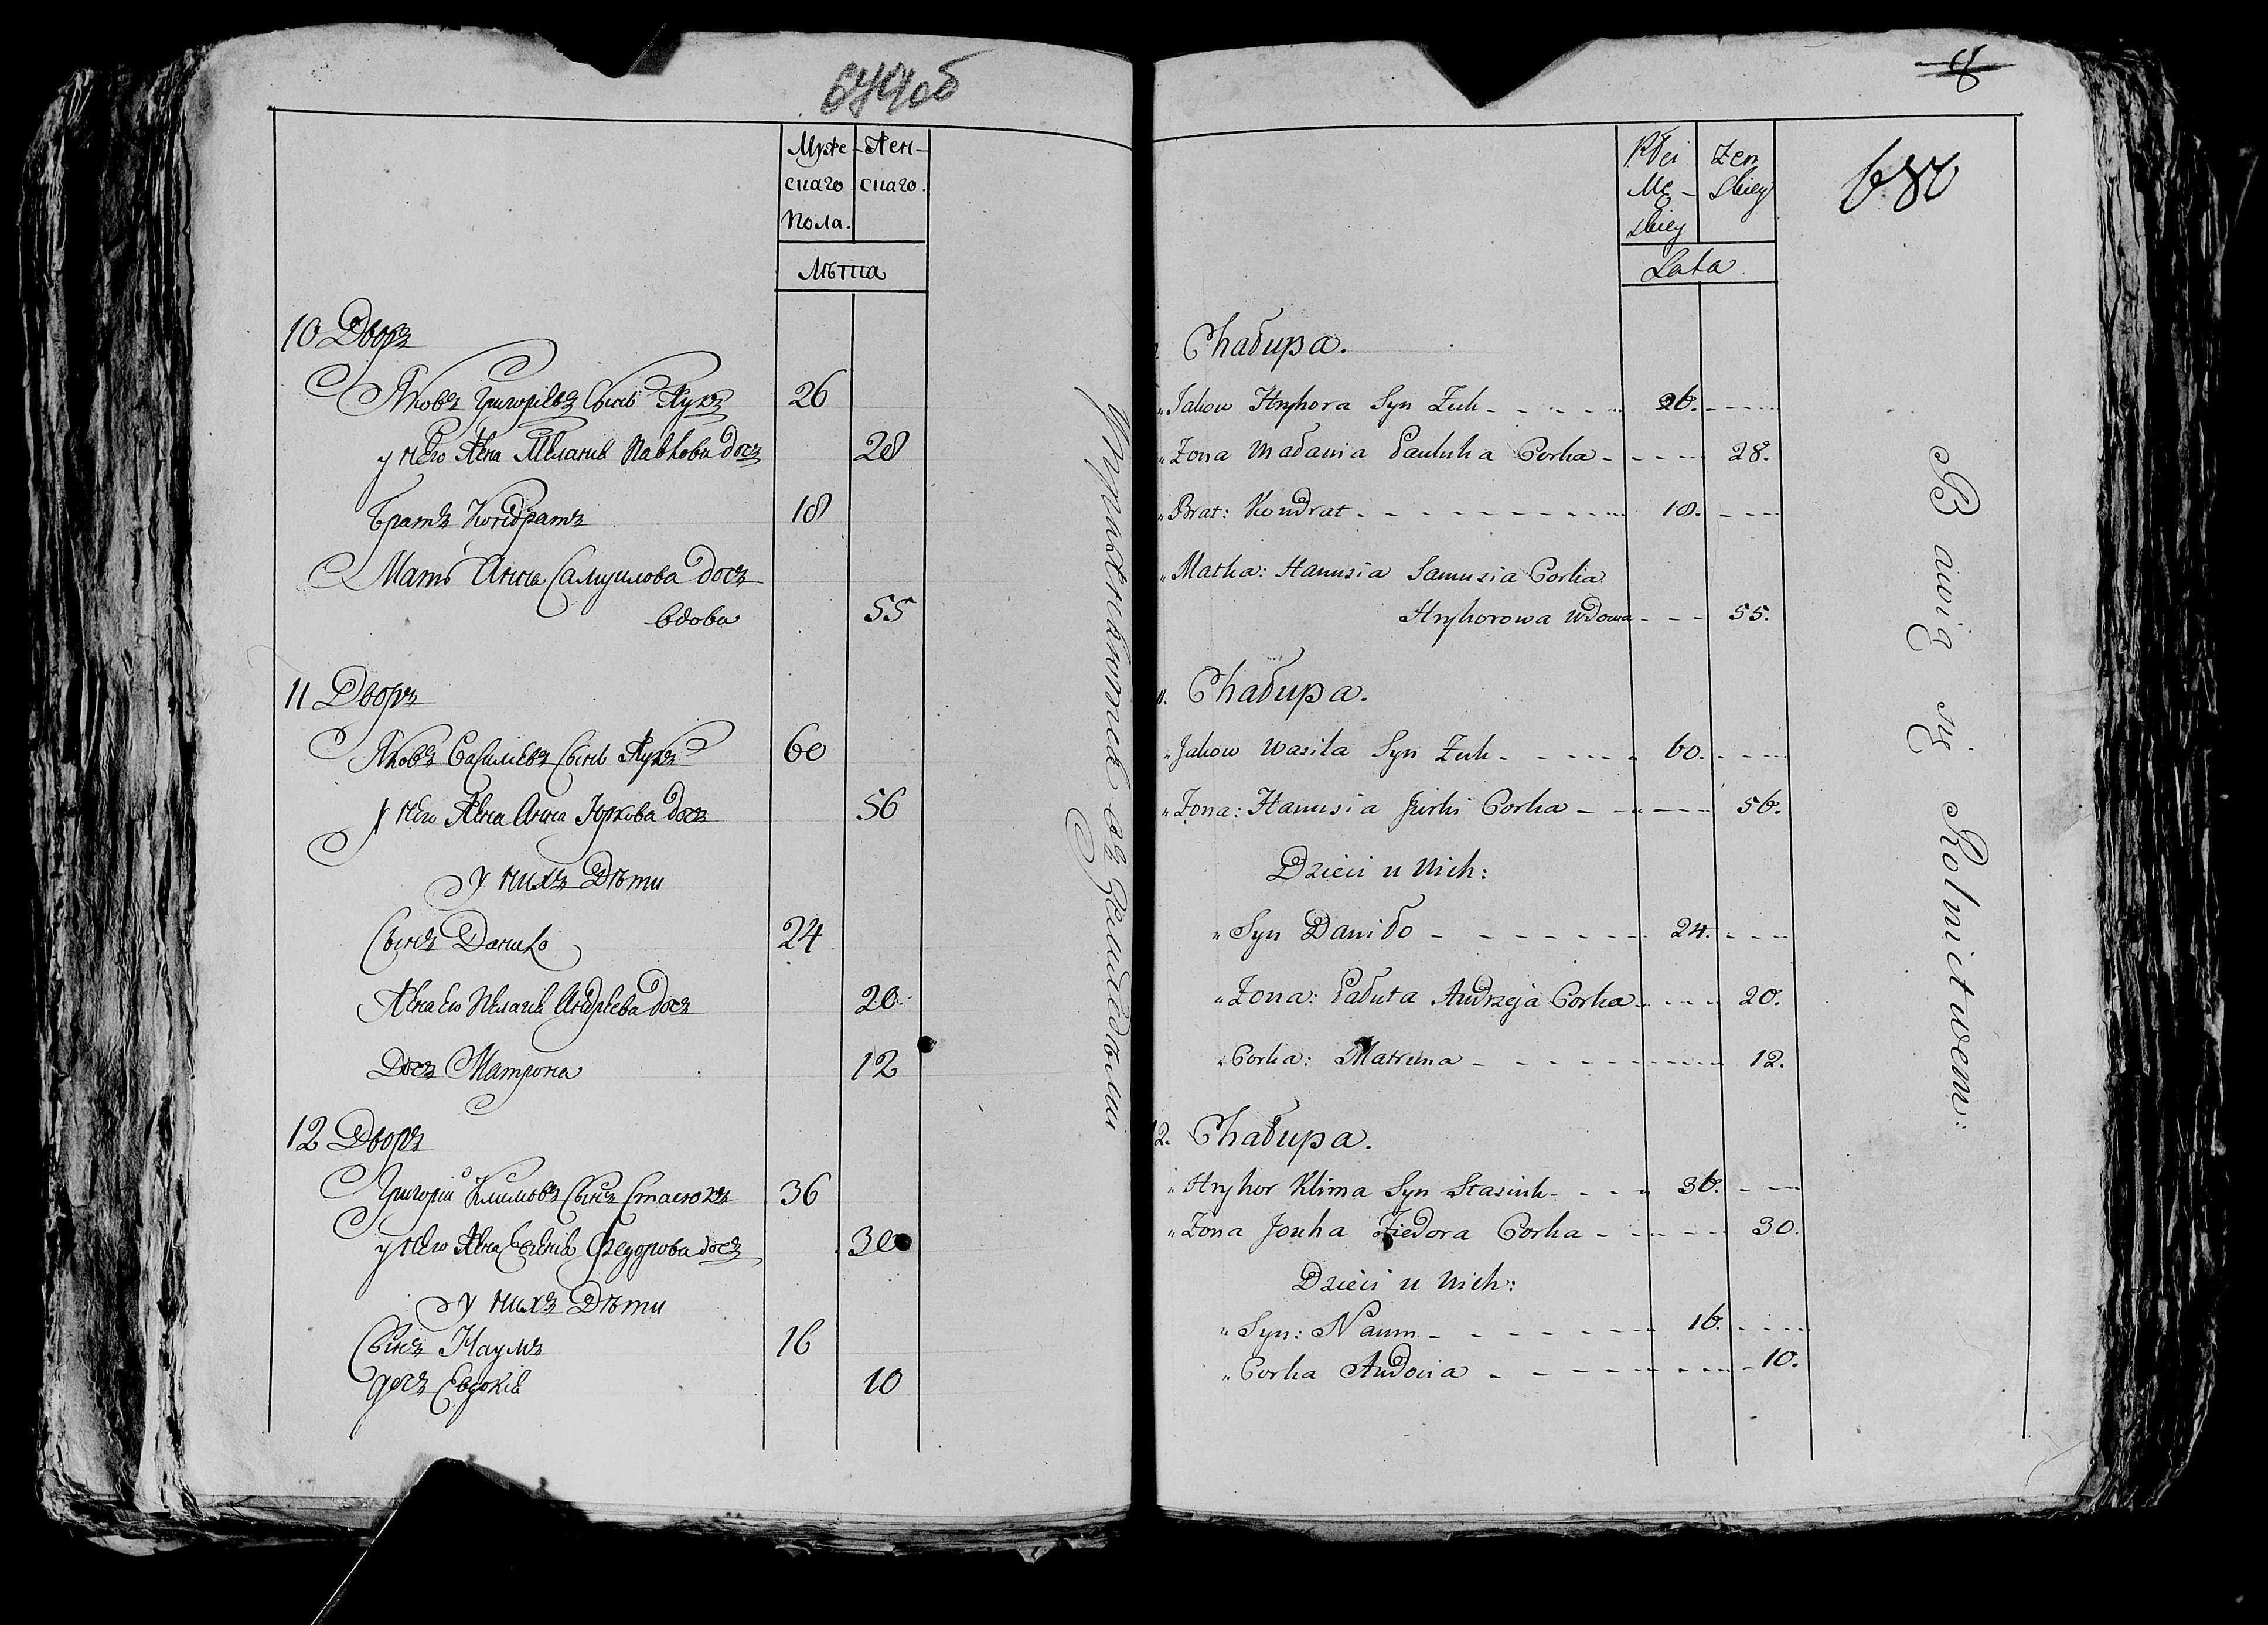 Муже-
скаго
Пола.
Жен-
скаго.
Лѣта
10 Дворъ
Яковъ Григорьевъ Сынъ Жукъ 26
у него Жена Меланія Павлова дочь 28
Братъ Кондратъ 18
Мать Анна Самуилова дочь
вдова 55
11 Дворъ
Яковъ Васильевъ Сынъ Жукъ 60
у него Жена Анна Юркова дочь 56
у нихъ Дѣти
Сынъ Данило 24
Жена его Пелагея Андреева дочь 20
Дочь Матрона 12
12 Дворъ
Григорій Климовъ Сынъ Стасюкъ 36
у него Жена Евгенія Федорова дочь 30
у нихъ Дѣти
Сынъ Наумъ 16
дочь Евдокія 10
Упражняются въ Земледѣліи
8
680
Płci
Mę-
skiey
Zen
skiey
Lata
Chałupa.
"Jakow Hryhora Syn Zuk 26.
"Zona Małania Pauluka Corka 28.
"Brat: Kondrat 18.
"Matka: Hanusia Samusia Corka
Hryhorowa Wdowa 55.
11. Chałupa.
"Jakow Wasila Syn Zuk 60.
"Zona: Hanusia Jurki Corka 56.
Dzieci u Nich:
"Syn Daniło 24.
"Zona: Pałuta Andrzeja Corka 20.
"Corka: Matruna 12.
12. Chałupa.
"Hryhor Klima Syn Stasiuk 36.
"Zona Jouha Fiedora Corka 30.
Dzieci u Nich:
"Syn: Naum 16.
"Corka Audocia 10.
Bawią się Rolnictwem: